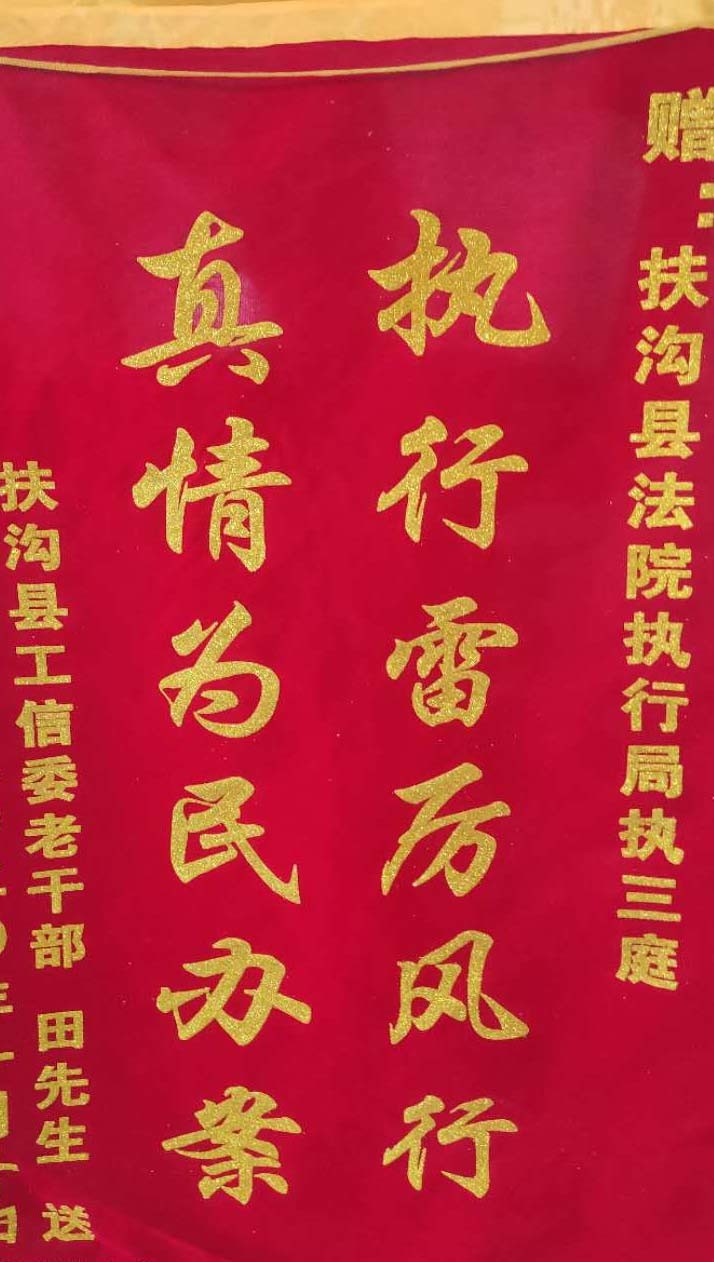 赠：
扶沟县法院执行局执三庭
执行雷厉风行
真情为民办案
扶沟县工信委老干部 田先生 送